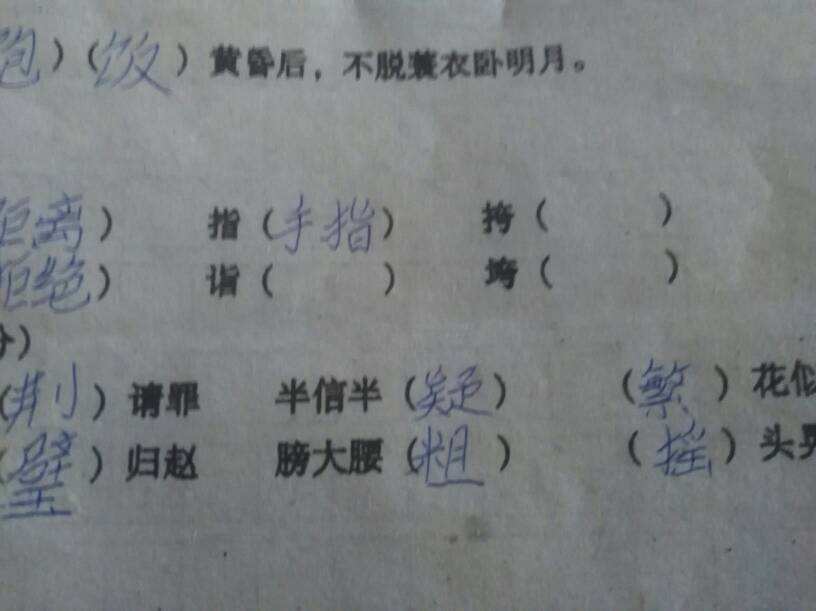 饱）（饭）黄昏后，不脱蓑衣卧明月。
距离） 指（手指） 挎（ ）
拒绝） 诣（ ） 垮（ ）
分）
（荆）请罪 半信半（疑） （繁）花似
（璧）归赵 膀大腰（粗） （摇）头晃